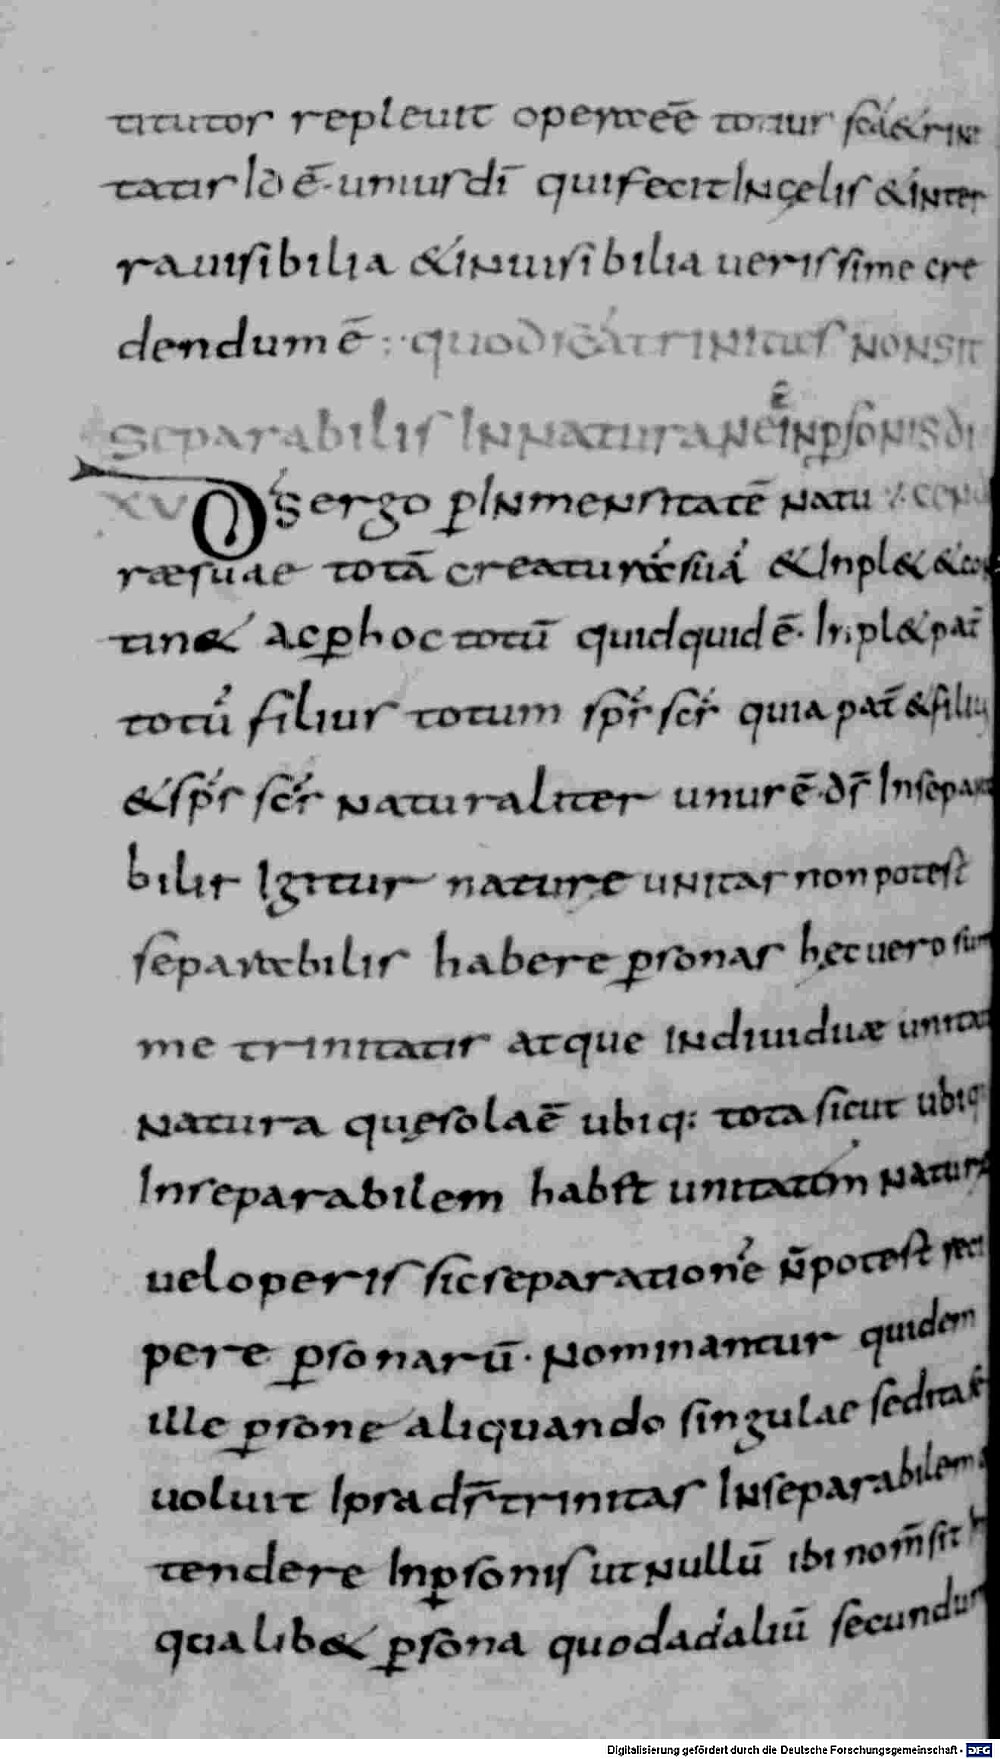 titutor repleuit opera eē totius scae trini
tatis Id ē· unius dī qui fecit In cęlis & in ter
ra uisibilia & inuisibilia uerissime cre
dendum ē :· quod scā trinitas non sit
separabilis In natura nec in psonis di
XV Ds ergo p Inmensitatē natu
ræ suae totā creaturā suā & Inpl& & con
tin& ac p hoc totū quidquid ē· Inpl& pat
totū filius totum sps scs quia pat & filius
& sps scs naturaliter unus ē ds Insepara
bilis Igitur nature unitas non potest
separabiles habere psonas hęc uero sum
me trinitatis atque indiuiduæ unitas
natura quę sola ē ubiq: tota sicut ubiq:
Inseparabilem habet unitatem naturae
uel operis sic separationē n potest reci
pere psonarū· Nominantur quidem
ille psone aliquando singulae sed ita se
uoluit Ipsa ds trinitas Inseparabilem
tendere In psonis ut nullū ibi nom sit In
qualib& psona quod ad aliū secundum
Digitalisierung gefördert durch die Deutsche Forschungsgemeinschaft - DFG